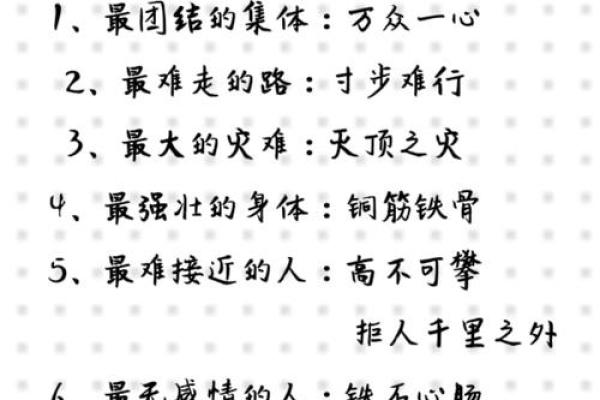 1、最团结的集体：万众一心
2、最难走的路：寸步难行
3、最大的灾难：灭顶之灾
4、最强壮的身体：铜筋铁骨
5、最难接近的人：高不可攀
拒人千里之外
6、最无感情的人：铁石心肠